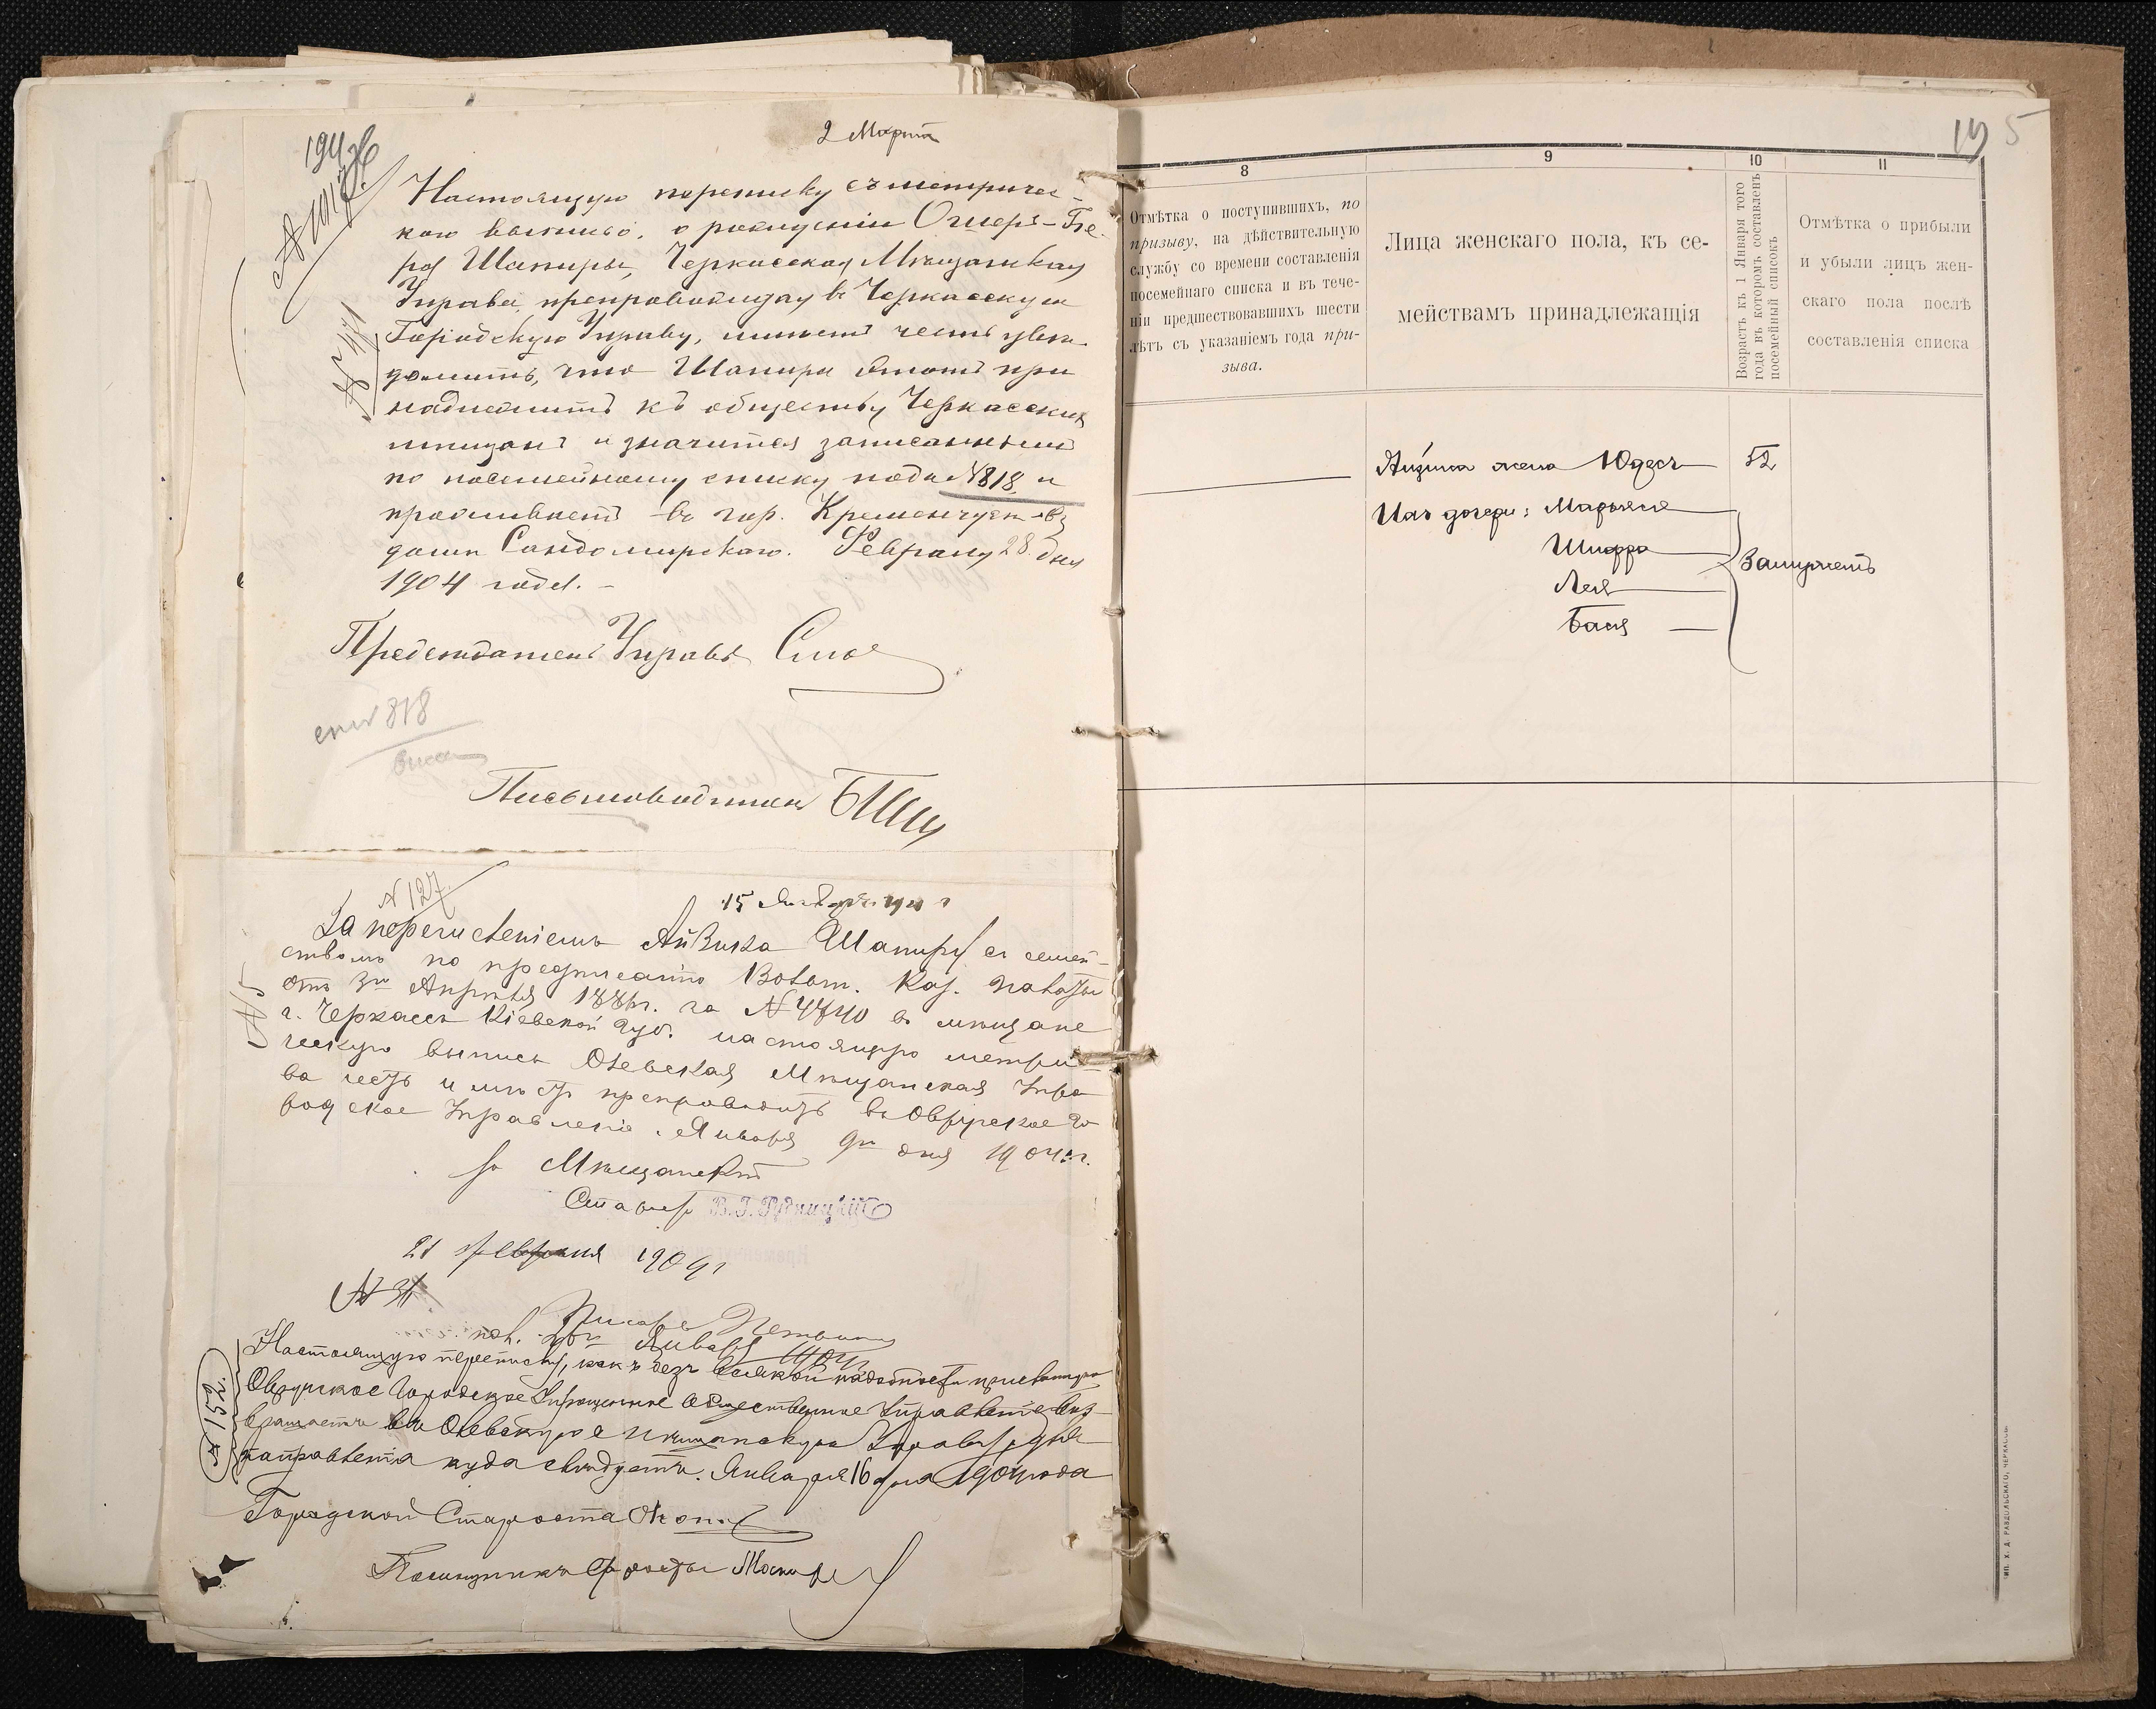 2 Марта
Настоящую переписку съ метричес-
кою выписью, о рожденіи Ошеръ-Бе-
ра Шапиры, Черкасская Мѣщанская
Управа, препровождая въ Черкасскую
Городскую Управу, имѣетъ честь увѣ-
домить, что Шапира этотъ при
надлежитъ къ обществу Черкасскихъ
мѣщанъ и значится записаннымъ
по посемейному списку подъ №818 и
проживаетъ въ гор. Кременчугѣ въ
домѣ Сандомирскаго. Февраля 28 дня
1904 года.
Предсѣдатель Управы
818
Письмоводитель
№ 127
15 Января 1904 г
За перечисленіемъ Айзика Шапиры съ семей-
ствомъ по предписанію Волын. Каз. Палаты
отъ 3го Апрѣля 188 г. за №4840 въ мѣщане
г. Черкассъ Кіевской губ. настоящую метри-
ческую выпись Олевская Мѣщанская Упра
ва честь имѣетъ препроводить въ Овручское Го
родское Управленіе. Января 9го дня 1904 г.
Мѣщанскій
Староста В. Г. Рудницкій
21 февраля 1904 г
№ 311
Января 1904
Настоящую переписку, какъ безъ всякой надобности присланную
Овручское Городское Упрощенное Общественное Управленіе воз-
вращаетъ въ Олевскую Мѣщанскую Управу для
направленія куда слѣдуетъ. Января 16 дня 1904 года
№ 152.
Городской Староста
Помощникъ Старосты
5
8
9
10
11
Отмѣтка о поступившихъ, по
призыву, на дѣйствительную
службу со времени составленія
посемейнаго списка и въ тече-
ніи предшествовавшихъ шести
лѣтъ съ указаніемъ года при-
зыва.
Лица женскаго пола, къ се-
мействамъ принадлежащія
Возрастъ къ 1 Января того
года въ которомъ составленъ
посемейный списокъ
Отмѣтка о прибыли
и убыли лицъ жен-
скаго пола послѣ
составленія списка
Айзика жена Юдесъ 52
Ихъ дочери: Марьяся
Шифра
Лея
Бася
Замужемъ
ТИП. Х. Д. РАЗДОЛЬСКАГО, ЧЕРКАССЫ.